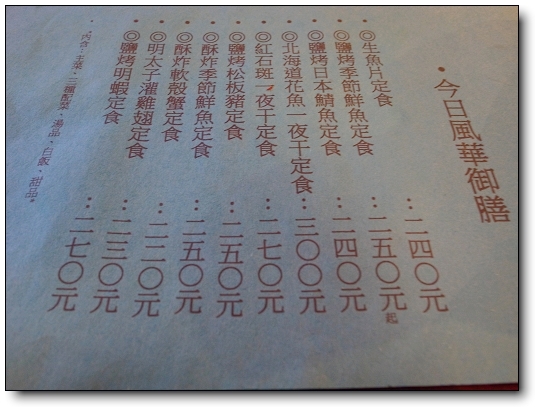 ·今日風華御膳
◎生魚片定食：二四〇元
◎鹽烤季節鮮魚定食：二五〇元起
◎鹽烤日本鯖魚定食：二四〇元
◎北海道花魚一夜干定食：三〇〇元
◎紅石斑一夜干定食：二七〇元
◎鹽烤松板豬定食：二五〇元
◎酥炸季節鮮魚定食：二五〇元
◎酥炸軟殼蟹定食：二二〇元
◎明太子灌雞翅定食：二三〇元
◎鹽烤明蝦定食：二七〇元
·內含：主菜、三種配菜、湯品、白飯、甜品。